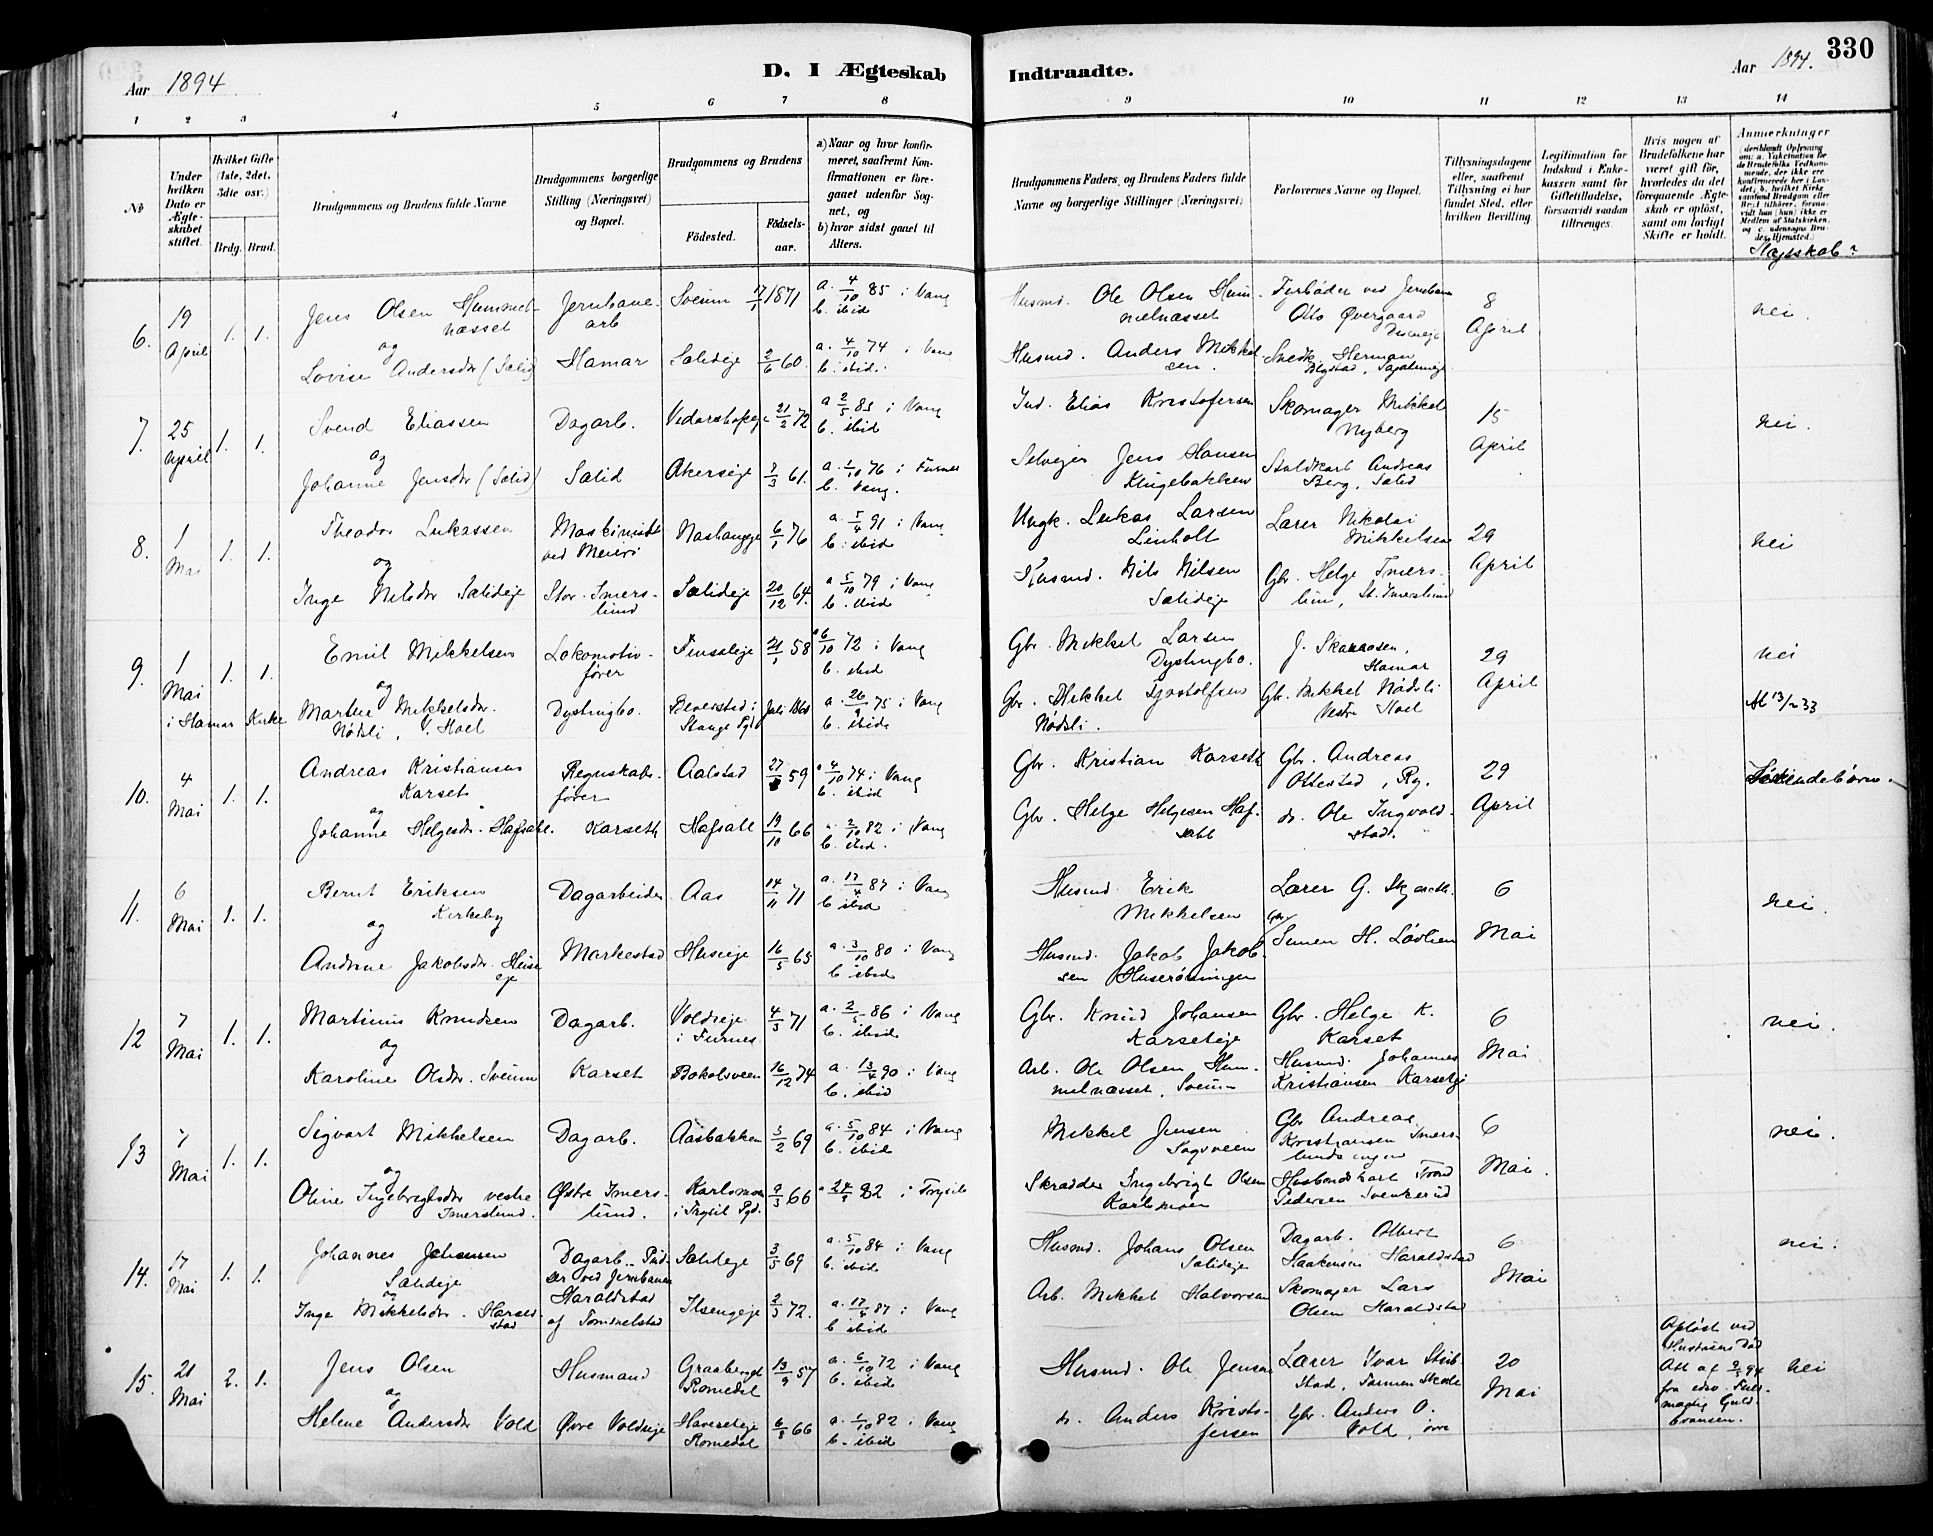 Aar 1894
D. I Ægteskab
Indtraadte.
Aar 1894.
330
1 2 3 4 5 6 7 8 9 10 11 12 13 14
№
Under hvilken Dato er Ægteskabet stiftet.
Hvilket Gifte (1ste, 2det, 3die osv.)
Brdg. Brud.
Brudgommens og Brudens fulde Navne
Brudgommens borgerlige Stilling (Næringsvei) og Bopæl.
Brudgommens og Brudens
Fødested.
Fødselsaar.
a) Naar og hvor konfirmeret, saafremt Konfirmationen er foregaaet udenfor Sognet, og
b) hvor sidst gaaet til Alters.
Brudgommens Faders, og Brudens Faders fulde Navne og borgerlige Stillinger (Næringsvei)
Forlovernes Navne og Bopæl.
Tillysningsdagene eller, saafremt Tillysning ei har fundet Sted, efter hvilken Bevilling.
Legitimation for Indskud i Enkekassen samt for Giftetilladelse, forsaavidt saadan tiltrænges.
Hvis nogen af Brudefolkene har været gift før, hvorledes da det foregaaende Ægteskab er opløst, samt om lovligt Skifte er holdt.
Anmerkninger
Slægtskab?
6. 19 April 1. 1.
Jens Olsen Hummelnæsset
og
Lovise Andersdr (Sælid)
Jernbanearb
Hamar
Sveum 1871
Sælideje 2/6 60.
a. 4/10 85 i Vang
b. ibid
a. 4/10 74 i Vang
b. ibid.
Husmd. Ole Olsen Hummelnæsset
Husmd. Anders Mikkelsen.
Fyrbøder ved Jernban
Otto Øvergaard
Snedk. Herman
8 April
nei.
7. 25 April 1. 1.
Svend Eliassen
og
Johanne Jensdr (Sælid)
Dagarb.
Sælid
21/2 72
Akerseje 61.
a 2/5 85 i Vang
b. ibid
a. 1/10 76 i Furnes
b. Vang.
Ind. Elias Kristofersen
Selvejer Jens Hansen
Klugebakken
Skomager Mikkel
Nyberg
Staldkarl Andreas
Berg, Sælid
15 April
nei.
8. 1 Mai 1. 1.
Theodor Lukassen
og
Inge Nilsdr Sælideje
Maskinist
ved Meieri
Stor-Imerslund
6/1 76
Sælideje 20/12 64.
a. 5/4 91 i Vang
b. ibid
a 5/10 79 i Vang
b. ibid
Ungk. Lukas Larsen
Linholt
Husmd. Nils Nilsen
Sælideje
Lærer Nikolai
Mikkelsen
Gbr. Helge Imerslun, St. Imerslund
29 April
nei
9. 1 Mai 1. 1.
i Hamar Kirke
Emil Mikkelsen
og
Marthe Mikkelsdr.
Nødsli, V. Hoel
Lokomotivfører
Dystingbo.
Finsaleje 21/1 58
Beverstad i
Stange Pgd
a 6/10 72 i Vang
b. ibid
a. 26/9 75 i Vang
b. ibid.
Gbr. Mikkel Larsen
Dystingbo.
Gbr. Mikkel Gjostolfsen
Nødsli.
J. Skaraasen,
Hamar
Gbr. Mikkel Nødsli
Vestre Hoel
29 April
nei
10. 4 Mai 1. 1.
Andreas Kristiansen
Karset
og
Johanne Helgesdr. Hafsale.
Regnskabsfører
Karseth
Aalstad 59
Hafsale 19/10 66
a 4/10 74 i Vang
b. ibid
a. 2/10 82 i Vang
b. ibid.
Gbr. Kristian Karseth
Gbr. Helge Helgesen Hafsahl
Gbr. Andreas
Ottestad, Rg.
do. Ole Ingvoldstad.
29 April
Søskendebörn.
11. 6 Mai 1. 1.
Bernt Eriksen
Kirkeby
og
Andrine Jakobsdr. Huseeje
Dagarbeider
Markestad
Aas 14/11 71
Huseeje 16/5 65
a. 17/4 87 i Vang
b ibid
a. 3/10 80 i Vang
b. ibid
Husmd. Erik
Mikkelsen
Husmd. Jakob Jakobsen Huserønningen
Lærer G. Skjæseth.
Gbr
Simen H. Løvlien
6 Mai
nei.
12 7 Mai 1. 1.
Martinius Knudsen
og
Karoline Olsdr. Sveum
Dagarb.
Karset
Voldseje
i Furnes 4/3 71
Bokolsveen 16/12 74
a. 2/5 86 i Vang
b. ibid
a. 13/4 90 i Vang
b. ibid
Gbr. Knud Johansen
Karseteje
Arb. Ole Olsen Hummelnæsset, Sveum
Gbr. Helge K.
Karset
Husmd. Johannes
Kristiansen Karsetej
6 Mai
nei.
13 7 Mai 1. 1.
Sigvart Mikkelsen
og
Oline Ingebrigtsdr vestre
Imerslund.
Dagarb.
Østre Imerslund.
Aasbakken 3/2 69
Karlsmoen
i Trysil Pgd. 9/3 66
a. 5/10 84 i Vang
b. ibid
a 24/9 82 i Trysil
Mikkel Jensen
Sagveen
Skrædder Ingebrigt Olsen
Karlsmoen
Gbr Andreas
Kristiansen Imerslunds
Husbondskarl Trond
Pedersen Svenkerud
6 Mai.
nei.
14. 17 Mai 1. 1.
Johannes Johansen
Sælideje
og
Inge Mikkelsdr. Haraldstad
Dagarb. Pudser ved Jernbanen
Haraldstad
af Tommelstad
Sælideje 3/5 69
Ilsengeje 2/3 72.
a. 5/10 84 i Vang
b. ibid
a. 17/4 87 i Vang
b ibid
Husmd. Johans Olsen
Sælideje
Arb. Mikkel Halvorsen
Dagarb. Olbert
Haakensen Haraldstad
Skomager Lars
Olsen Haraldstad
6 Mai
nei.
15. 21 Mai 2. 1.
Jens Olsen
og
Helene Andersdr Vold
Husmand
Øvre Voldseje
Graabergel
Romedal 13/9 57
Haverseteje
Romedal 6/8 66
a. 6/10 72 i Vang
b. ibid
a. 1/10 82 i Vang
b. ibid
Husmd. Ole Jensen
do. Anders Kristofersen
Lærer Ivar Stubstad, Tommen Skole
Gbr. Anders O.
Vold, øvre
20 Mai
Opløst ved
Hustruens Död
Att af 9/5 94
fra edsv. Fuldmægtig Guldbransen.
nei